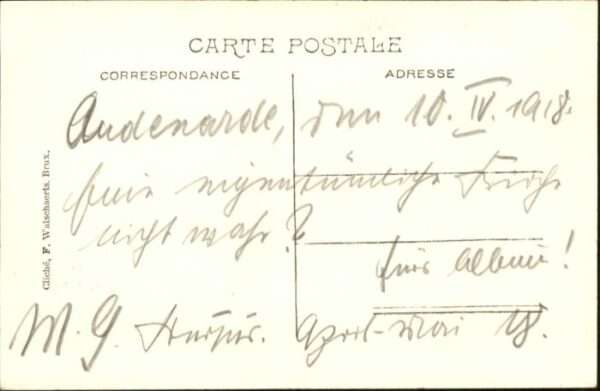 CARTE POSTALE
CORRESPONDANCE
ADRESSE
Audenarde, den 10. IV. 1918.
Eine eigentümliche Kirche
nicht wahr?
fürs Album!
M. G. April-Mai 18.
Cliché, F. Walschaerts. Brux.